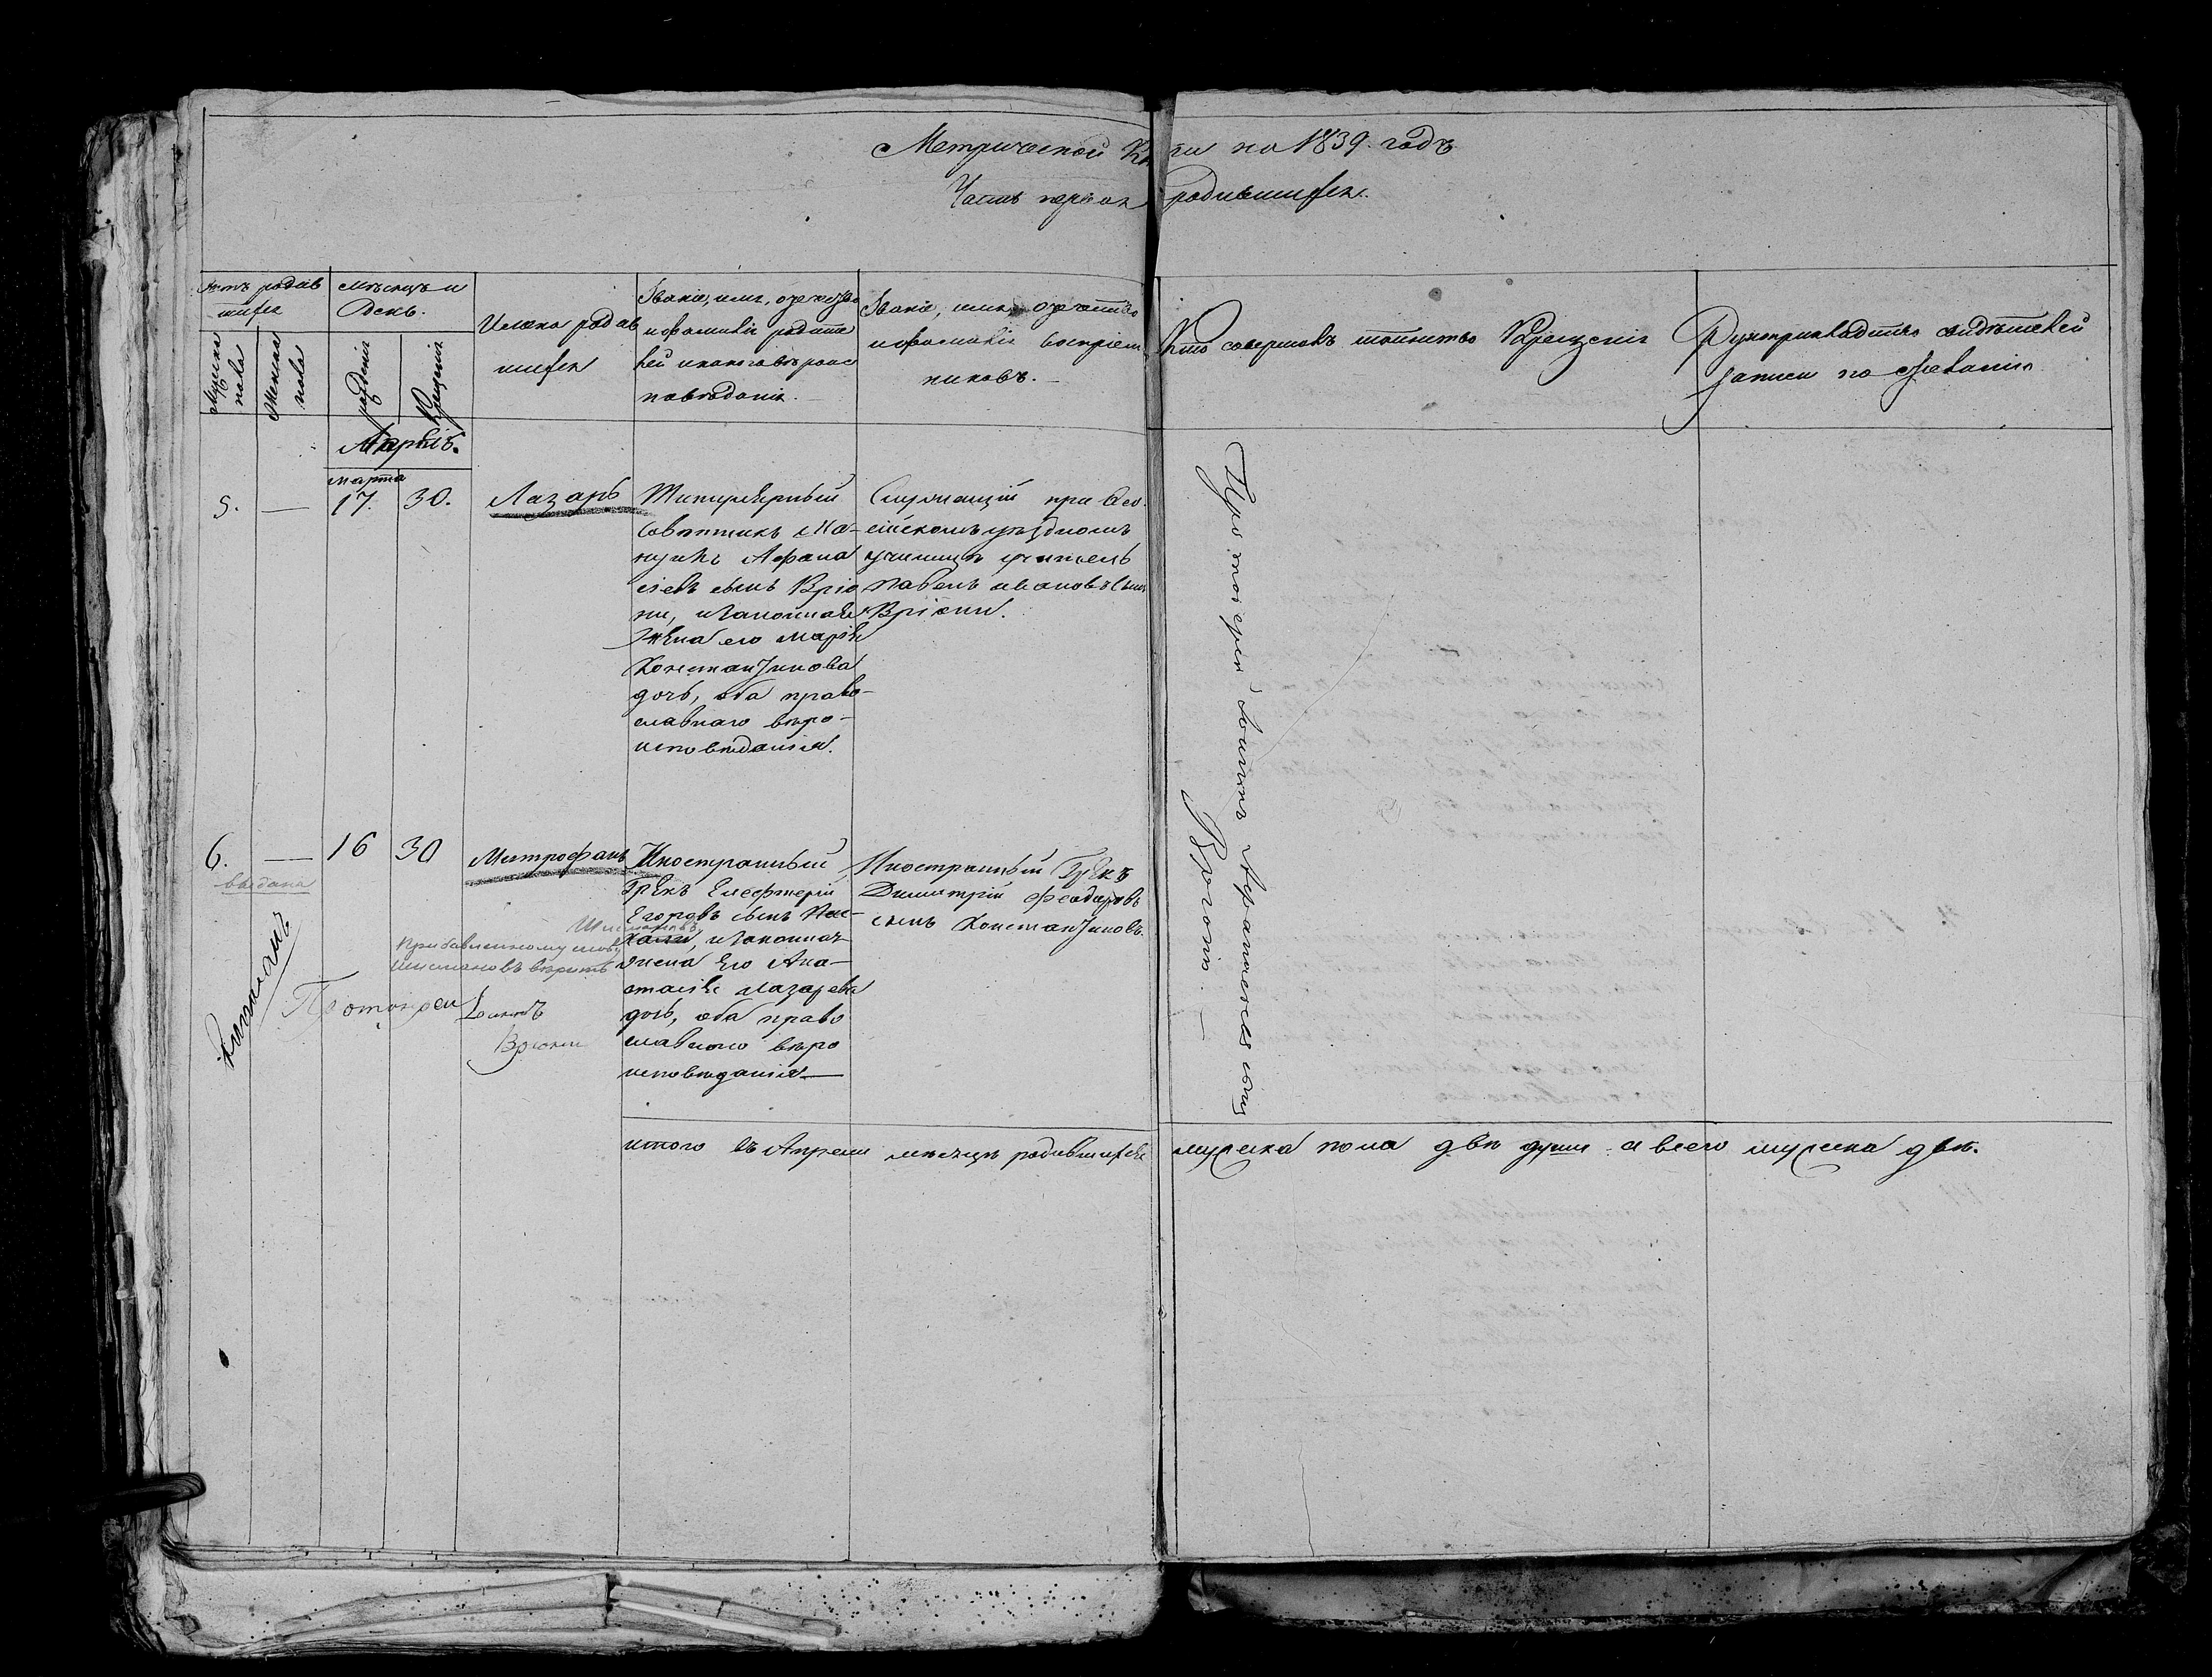 Метрической Книги на 1839. годъ
Часть первая родившихся.
Счетъ родив
шихся
Мѣсяцъ и
День.
Мужеска
пола
Женска
пола
рожденія
Крещенія
Имена родив
шихся
Званіе, имя, отечество
и фамилія родите
лей и какого вѣроис
повѣданія.
Званіе, имя, отечество
и фамилія воспріем
никовъ.
Кто совершалъ таинство Крещенія
Рукоприкладство свидѣтелей
записи по желанію
Апрѣль.
марта
5. — 17. 30. Лазарь
Титулярный
Совѣтникъ Ма-
нуилъ Афана
сіевъ сынъ Вріо
ни, и законная
жена его Марія
Константинова
дочь, оба право-
славнаго вѣро-
исповѣданія.
Служащій при Ѳео-
сійскомъ уѣздномъ
училищѣ учитель
Павелъ Ивановъ сынъ
Вріони.
Протоіерей Іоаннъ Афанасіевъ сынъ
Вріони. —
6. — 16 30 Митрофанъ
выдана
Иностранный
Грекъ Елефтерій
Егоровъ сынъ
, и законная
жена Его Ана-
стасія Лазарева
дочь, оба право
славного вѣро
исповѣданія —
Иностранный Грекъ
Димитрій Феодоровъ
сынъ Константиновъ.
Прибавленному слову
Шишмановъ вѣрить
Протоіерей Іоаннъ
Вріони
итого въ Апрели мѣсяцѣ родившихся мужеска пола двѣ души а всего мужеска двѣ.